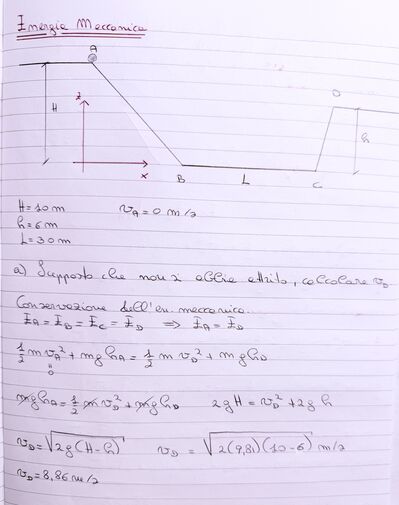 Energia Meccanica
A
D
H
z
h
x
B
L
C
H=10m
v_A = 0 m/s
h=6m
L=30m
a) Supposto che non si abbia attrito, calcolare v_D
Conservazione dell'en. meccanica.
E_A = E_B = E_C = E_D ⇒ E_A = E_D
1/2 m v_A² + m g h_A = 1/2 m v_D² + m g h_D
0
m g h_A = 1/2 m v_D² + m g h_D    2gH = v_D² + 2g h
v_D = √(2g(H-h))    v_D = √(2(9,81)(10-6)) m/s
v_D = 8,86 m/s